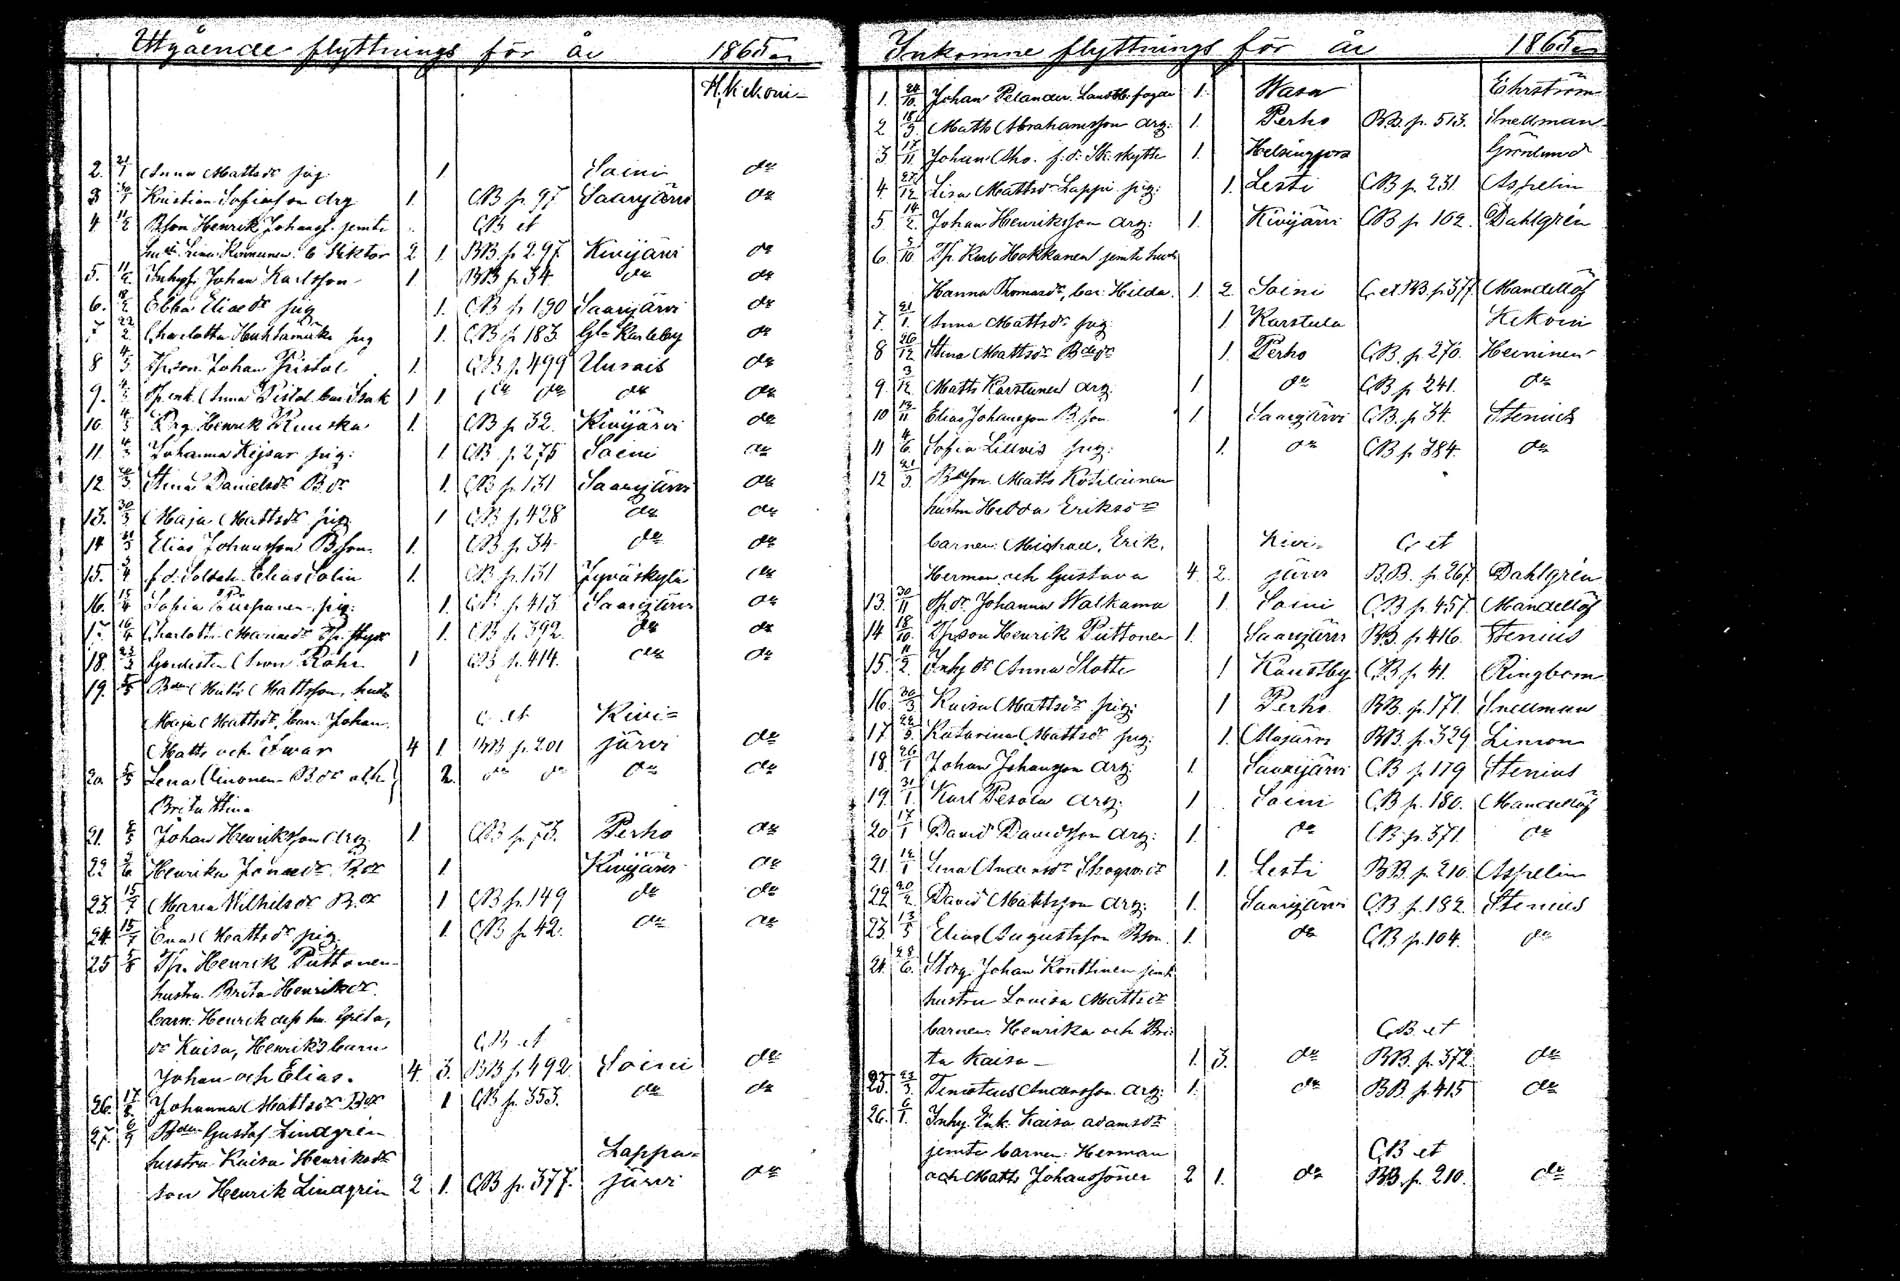 Utgående flyttnings för år 1865
H. Kekoni
2. 21/1 Anna Mattsdr pig. 1 Soini do
3 Kristian Sofiasson drg 1. CB p. 97 Saarijärvi do
4 11/2 Bson Henrik Johanss. jemte CB et
Lena Kinnunen o Viktor 2 1. BB. p. 297. Kivijärvi do
5. 11/2 Inhys. Johan Karlsson 1 BB p. 34. do do
6. Ebba Eliasdr pig 1. CB p. 190 Saarijärvi do
7 22/2 Charlotta Huhtamäki pig 1. CB p. 183. Gla Karleby do
8 4/3 Tpson Johan Pistol 1. CB p. 499 Uurais do
9. Tp. enk. Anna Pistol barn Isak 1 1 do do do do
10. 4/3 Drg. Henrik Ruuska 1. CB p. 32. Kivijärvi do
11. 4/3 Johanna Kejsar pig: 1 CB p. 275 Soini do
12. Stina Danielsdr Bdr 1. CB p. 131 Saarijärvi do
13. 30/3 Maja Mattsdr pig. 1 CB p. 428 do do
14 Elias Johansson Bson. 1. CB p. 34. do do
15. f.d. Soldat. Elias Solin 1. CB p. 131 Jyväskylä do
16. 15/4 Sofia pig. 1. CB p. 413. Saarijärvi do
17 Charlotta 1. CB p. 392. do do
18. Röhr 1 CB p. 414. do do
19. 5/5 Bden Matts Mattsson, hustr
Maja Mattsdr, barn Johan C et Kivi=
Matts och Iwar 4 1. BB p. 201 järvi do
20. 5/5 Lena Ainonen Bdr och 2. do do do do
Brita Stina
21. Johan Henriksson drg. 1 CB p. 73. Perho do
22 Henrika Jonaedr Bdr 1 Kivijärvi do
23. Maria Wilhelsdr Bdr 1 CB p. 149 do do
24. 15/7 Mattsdr pig. 1. CB p. 42. do do
25 5/8 Tp. Henrik Puttonen
hustru Brita Henriksdr.
barn: Henrik dess hu. Greta,
dr Kaisa, Henriks barn CB et
Johan och Elias. 4. 3. BB p. 492. Soini do
26. 17/8 Johanna Mattsdr Bdr 1 CB p. 353. do do
27. 6/9 Bden Gustaf Lindgren
hustru Kaisa Henriksdr Lappa=
son Henrik Lindgren 2 1. CB p. 377. järvi do
Inkomne flyttnings för år 1865
1. 24/10 Johan Pelander. fogde 1. Wasa Ehrström
2 Matts Abrahamsson drg: 1. Perho BB. p. 513. Snellman
3 17/11 Johan f.d. Sk. skytte 1. Helsingfors Grönlund
4. 27/12 Lisa Mattsdr Lappi pig: 1. Lesti CB p. 231. Aspelin
5 14/2 Johan Henriksson drg: 1. Kivijärvi CB p. 102. Dahlgrén
6. 5/10 Tp. Karl Hakkanen jemte hust
Hanna Thomasdr, bar: Hilda. 1. 2. Soini C et BB. p. 377. Mandellöf
7. 21/1 Anna Mattsdr pig. 1 Karstula Kekoni
8 26/12 Stina Mattsdr Bdr 1. Perho CB. p. 270. Heininen
9. 3/12 Matts Karstunen drg 1 do CB p 241. do
10 Elias Johansson B.son 1 Saarijärvi CB. p. 34. Stenius
11 4/6 Sofia Lillvis pig: 1. do CB p. 384. do
12 21/3 Bdson Matts Kotilainen
hustru Hedda Eriksdr
barnen: Michael, Erik, Kivi- C et
Herman och Gustava 4. 2. järvi B.B. p. 267. Dahlgrén
13. 30/11 Tp. dr. Johanna Walkama 1. Soini CB p. 457. Mandellöf
14 18/10 Tpson Henrik Puttonen 1. Saarijärvi BB. p. 416. Stenius
15. 11/2 Inhy dr Anna Slotte 1 Kaustby CB p. 41. Ringbom
16. 30/3 Kaisa Mattsdr pig: 1 Perho BB. p. 171. Snellman
17 Katarina Mattsdr pig. 1. Alajärvi BB. p. 329 Limon
18. 26/1 Johan Johansson drg. 1. Saarijärvi CB. p 119 Stenius
19. 31/1 Karl Pesola drg: 1 Soini CB p. 180. Mandellöf
20 17/1 David Davidsson drg: 1. do CB. p. 371. do
21 Lena Andersdr 1. Lesti BB. p. 210. Aspelin
22 20/2 David Mattsson drg: 1. Saarijärvi CB. p. 182. Stenius
23. 13/5 Elias Augustsson Bson. 1. do CB p. 104. do
24. 28/6 Johan Konttinen jemte
hustru Lovisa Mattsdr
barnen: Henrika och Bri= CB et
ta Kaisa 1. 3. do BB. p. 372. do
25. 22/3 Timoteus Andersson drg: 1. do BB. p. 415 do
26. 6/1 Inhy. Enk. Kaisa Adamsdr
jemte barnen: Herman CB et
och Matts Johanssöner 2 1. do BB. p. 210. do